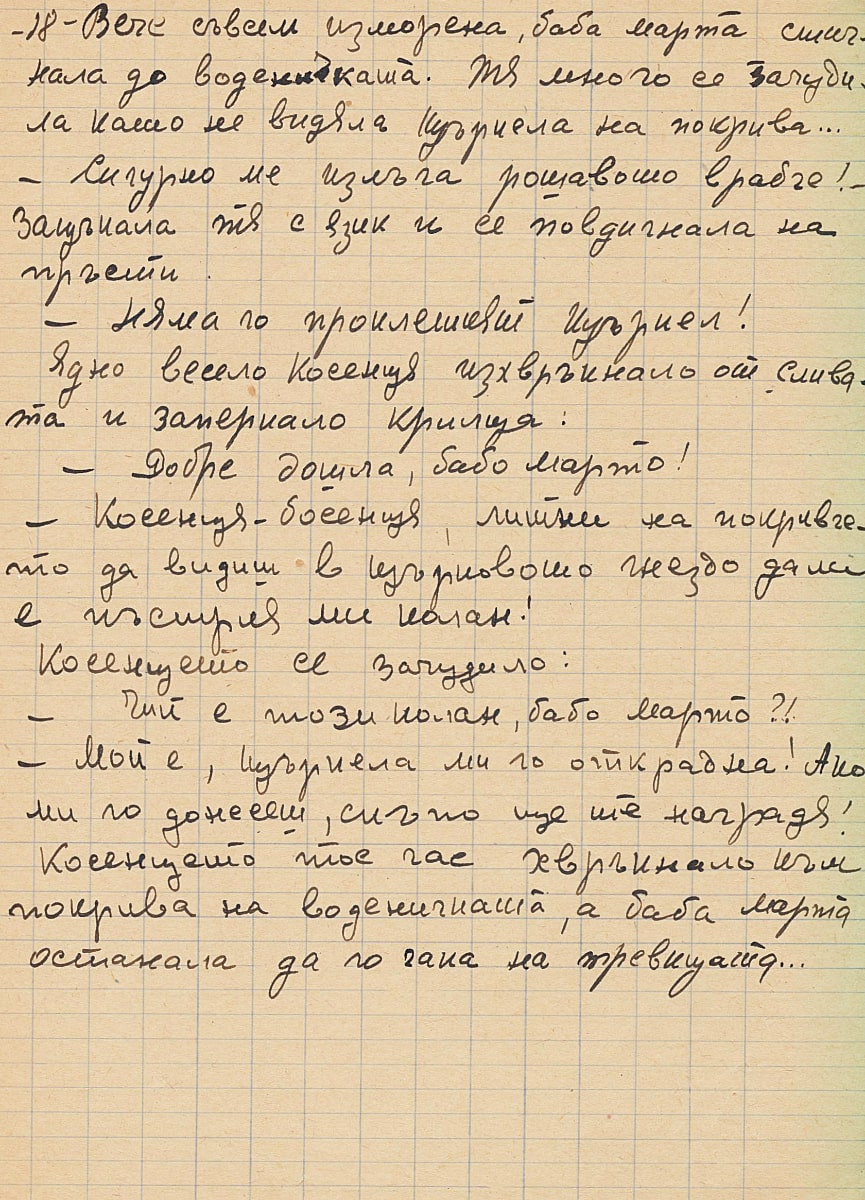 -18- Вече съвсем изморена, баба Марта стиг-
нала до воденичката. Тя много се зачуди-
ла като не видяла Щъркела на покрива...
- Сигурно ме излъга рошавото врабче! -
Зацъкала тя с език и се повдигнала на
пръсти.
- Няма го проклетият Щъркел!
Ядно весело Косенце изхвръкнало от слива-
та и запернало крилца:
- Добре дошла, бабо Марто!
- Косенце-босенце, литни на покривче-
то да видиш в щърковото гнездо дали
е пъстрия ми колан!
Косенцето се зачудило:
- Чий е този колан, бабо Марто?!
- Мой е, Щъркела ми го открадна! Ако
ми го донесеш, скъпо ще те наградя!
Косенцето тос час хвръкнало към
покрива на воденичката, а баба Марта
останала да го чака на тревицата...